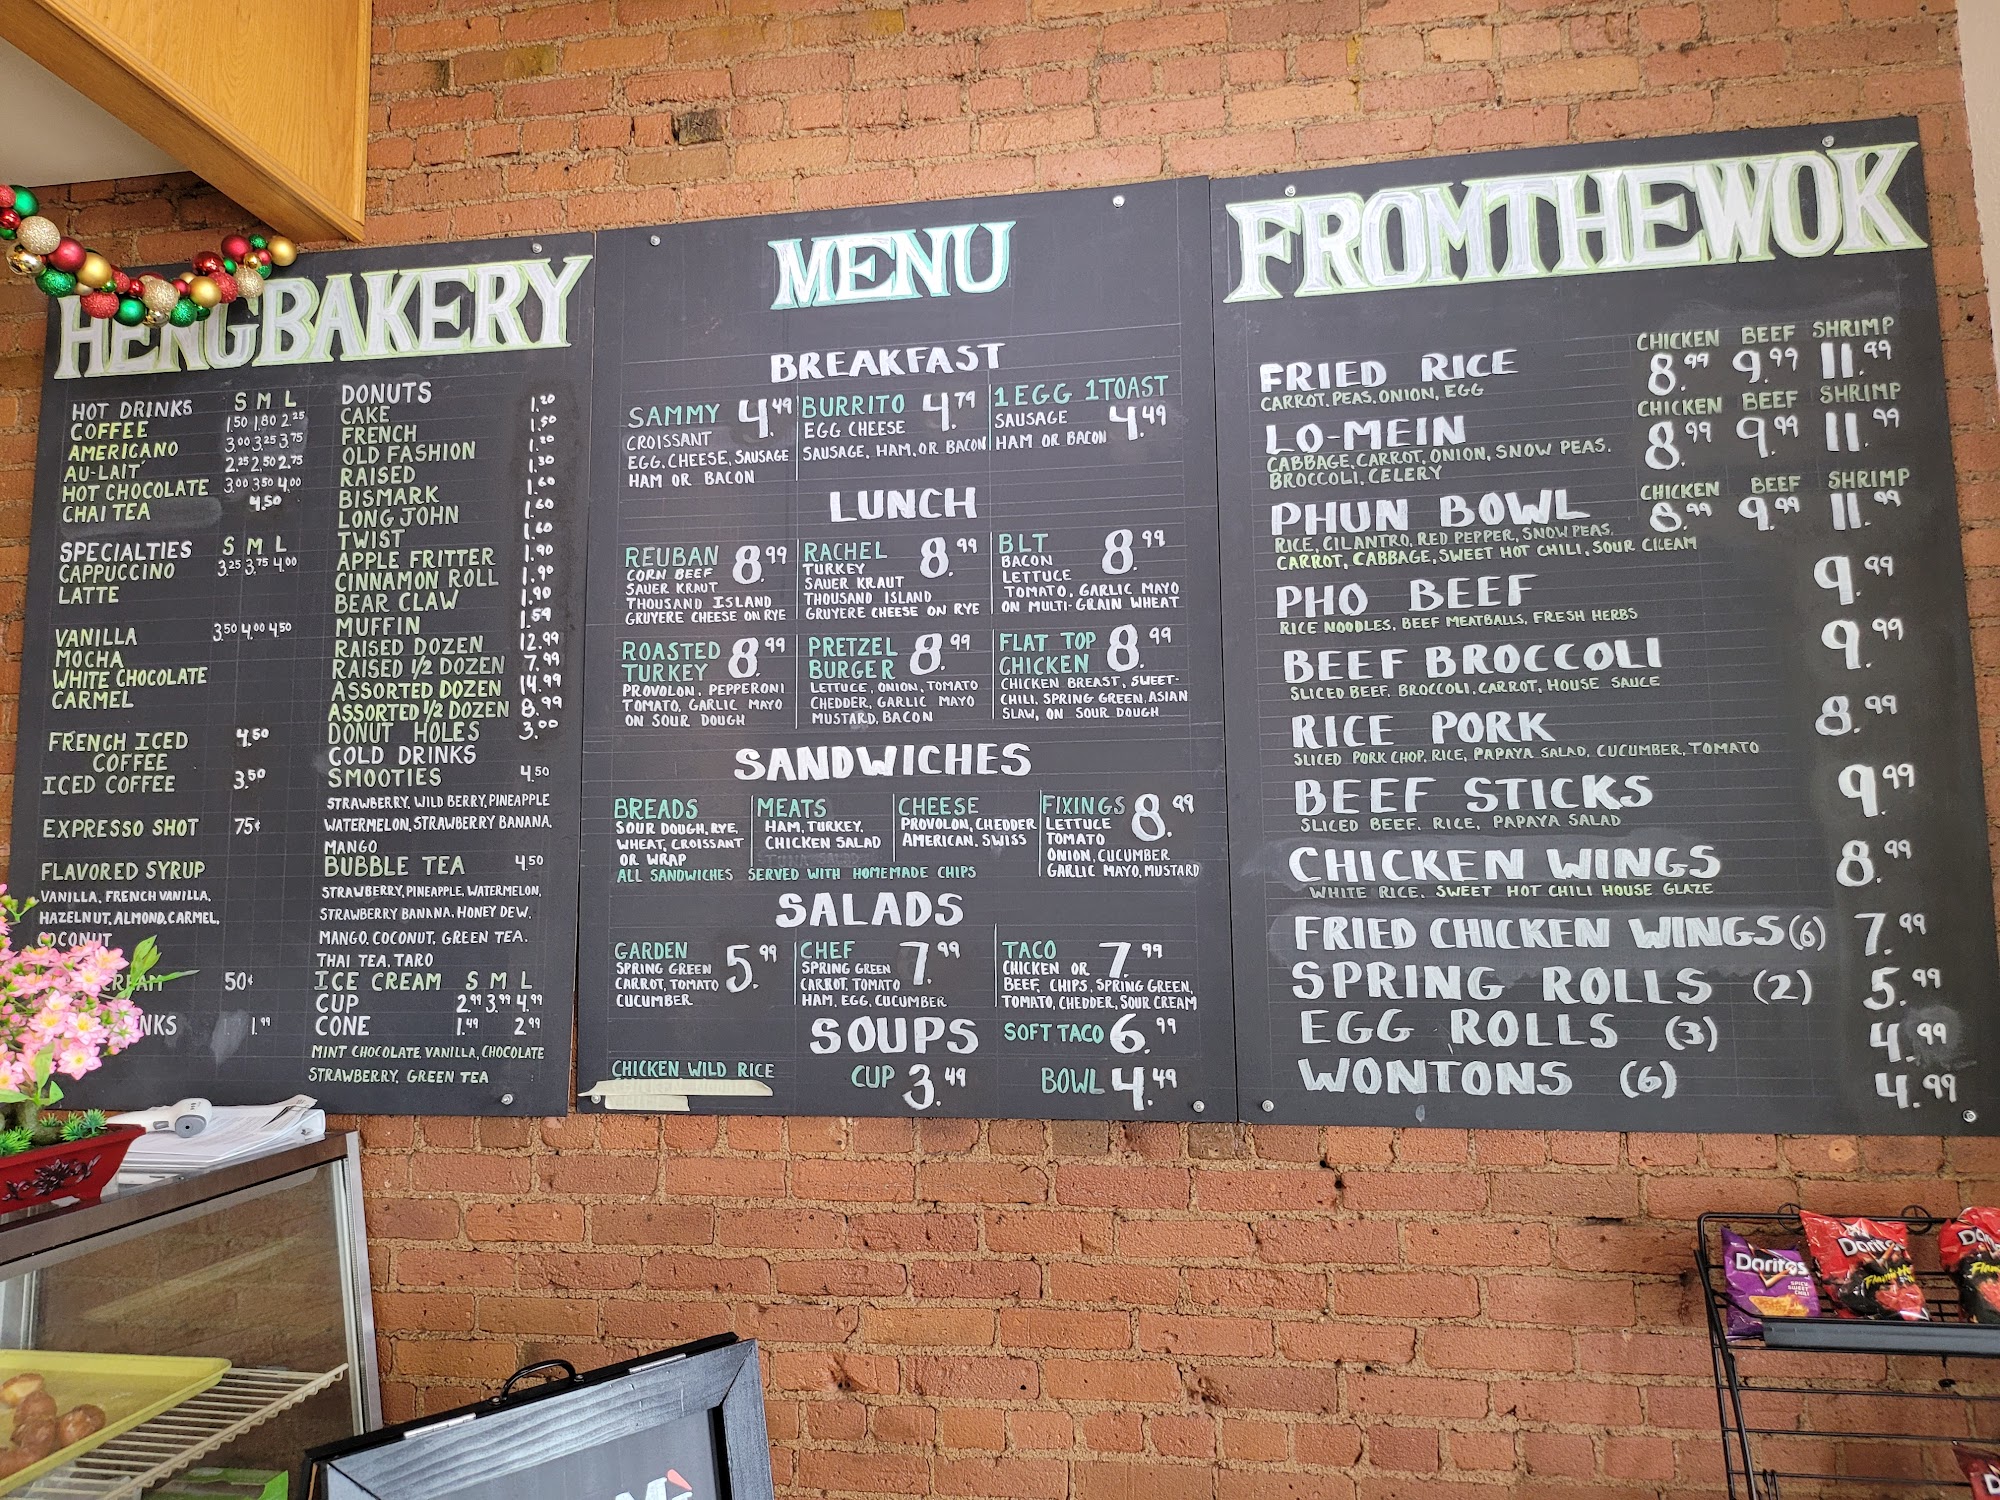 HENG BAKERY
HOT DRINKS S M L
COFFEE 1.50 1.80 2.25
AMERICANO 3.00 3.25 3.75
AU-LAIT 2.25 2.50 2.75
HOT CHOCOLATE 3.00 3.50 4.00
CHAI TEA 4.50
SPECIALTIES S M L
CAPPUCCINO 3.25 3.75 4.00
LATTE
VANILLA 3.50 4.00 4.50
MOCHA
WHITE CHOCOLATE
CARMEL
FRENCH ICED 4.50
COFFEE
ICED COFFEE 3.50
EXPRESSO SHOT 75¢
FLAVORED SYRUP
VANILLA, FRENCH VANILLA,
HAZELNUT, ALMOND, CARMEL,
COCONUT
CREAM 50¢
NKS 1.99
DONUTS
CAKE 1.20
FRENCH 1.50
OLD FASHION 1.20
RAISED 1.30
BISMARK 1.60
LONG JOHN 1.60
TWIST 1.60
APPLE FRITTER 1.90
CINNAMON ROLL 1.90
BEAR CLAW 1.90
MUFFIN 1.59
RAISED DOZEN 12.99
RAISED 1/2 DOZEN 7.99
ASSORTED DOZEN 14.99
ASSORTED 1/2 DOZEN 8.99
DONUT HOLES 3.00
COLD DRINKS
SMOOTIES 4.50
STRAWBERRY, WILD BERRY, PINEAPPLE
WATERMELON, STRAWBERRY BANANA,
MANGO
BUBBLE TEA 4.50
STRAWBERRY, PINEAPPLE, WATERMELON,
STRAWBERRY BANANA, HONEY DEW,
MANGO, COCONUT, GREEN TEA.
THAI TEA, TARO
ICE CREAM S M L
CUP 2.99 3.99 4.99
CONE 1.49 2.99
MINT CHOCOLATE, VANILLA, CHOCOLATE
STRAWBERRY, GREEN TEA
MENU
BREAKFAST
SAMMY 4.49
CROISSANT
EGG, CHEESE, SAUSAGE
HAM OR BACON
BURRITO 4.79
EGG CHEESE
SAUSAGE, HAM, OR BACON
1 EGG 1 TOAST
SAUSAGE 4.49
HAM OR BACON
LUNCH
REUBAN 8.99
CORN BEEF
SAUER KRAUT
THOUSAND ISLAND
GRUYERE CHEESE ON RYE
RACHEL 8.99
TURKEY
SAUER KRAUT
THOUSAND ISLAND
GRUYERE CHEESE ON RYE
BLT 8.99
BACON
LETTUCE
TOMATO, GARLIC MAYO
ON MULTI-GRAIN WHEAT
ROASTED 8.99
TURKEY
PROVOLON, PEPPERONI
TOMATO, GARLIC MAYO
ON SOUR DOUGH
PRETZEL 8.99
BURGER
LETTUCE, ONION, TOMATO
CHEDDER, GARLIC MAYO
MUSTARD, BACON
FLAT TOP 8.99
CHICKEN
CHICKEN BREAST, SWEET-
CHILI, SPRING GREEN, ASIAN
SLAW, ON SOUR DOUGH
SANDWICHES
BREADS
SOUR DOUGH, RYE,
WHEAT, CROISSANT
OR WRAP
MEATS
HAM, TURKEY,
CHICKEN SALAD
TUNA SALAD
CHEESE
PROVOLON, CHEDDER
AMERICAN, SWISS
FIXINGS 8.99
LETTUCE
TOMATO
ONION, CUCUMBER
GARLIC MAYO, MUSTARD
ALL SANDWICHES SERVED WITH HOMEMADE CHIPS
SALADS
GARDEN 5.99
SPRING GREEN
CARROT, TOMATO
CUCUMBER
CHEF 7.99
SPRING GREEN
CARROT, TOMATO
HAM, EGG, CUCUMBER
TACO 7.99
CHICKEN OR
BEEF, CHIPS, SPRING GREEN,
TOMATO, CHEDDER, SOUR CREAM
SOFT TACO 6.99
SOUPS
CHICKEN WILD RICE CUP 3.49 BOWL 4.49
FROM THE WOK
CHICKEN BEEF SHRIMP
FRIED RICE 8.99 9.99 11.99
CARROT, PEAS, ONION, EGG
CHICKEN BEEF SHRIMP
LO-MEIN 8.99 9.99 11.99
CABBAGE, CARROT, ONION, SNOW PEAS.
BROCCOLI, CELERY
CHICKEN BEEF SHRIMP
PHUN BOWL 8.99 9.99 11.99
RICE, CILANTRO, RED PEPPER, SNOW PEAS,
CARROT, CABBAGE, SWEET HOT CHILI, SOUR CREAM
PHO BEEF 9.99
RICE NOODLES, BEEF MEATBALLS, FRESH HERBS
BEEF BROCCOLI 9.99
SLICED BEEF, BROCCOLI, CARROT, HOUSE SAUCE
RICE PORK 8.99
SLICED PORK CHOP, RICE, PAPAYA SALAD, CUCUMBER, TOMATO
BEEF STICKS 9.99
SLICED BEEF, RICE, PAPAYA SALAD
CHICKEN WINGS 8.99
WHITE RICE, SWEET HOT CHILI HOUSE GLAZE
FRIED CHICKEN WINGS (6) 7.99
SPRING ROLLS (2) 5.99
EGG ROLLS (3) 4.99
WONTONS (6) 4.99
Doritos
SPICY
SWEET
CHILI
Doritos
Flamin' Hot